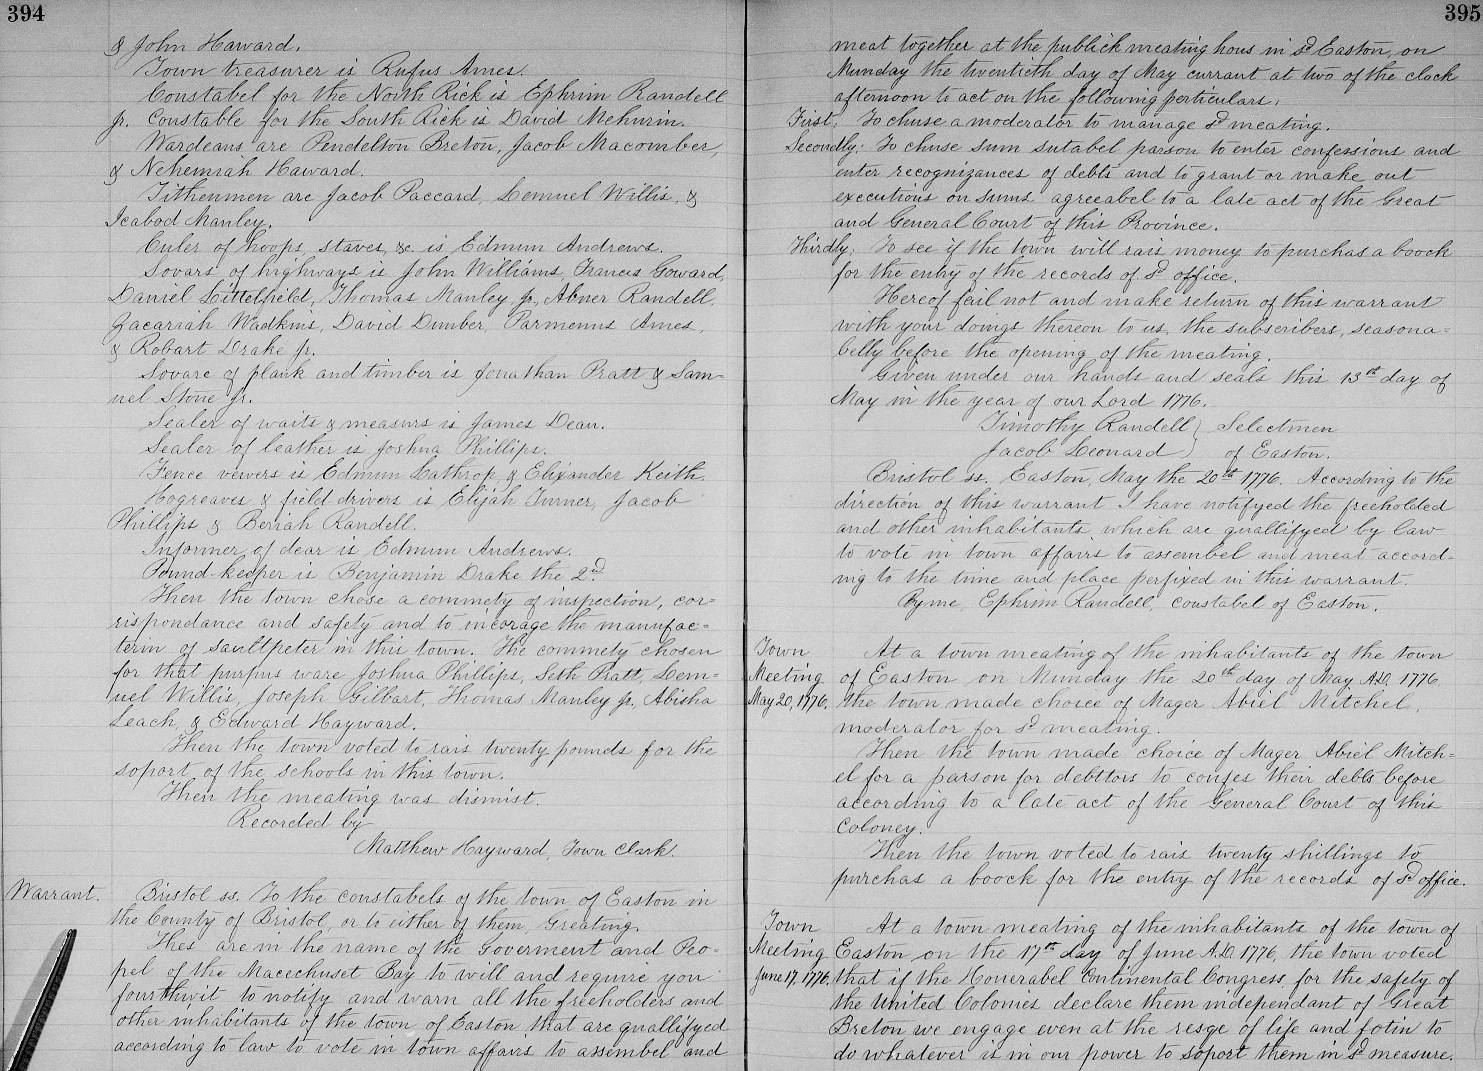 394
& John Haward.
Town treasurer is Rufus Ames.
Constabel for the North Rick is Ephrim Randell
jr. Constable for the South Rick is David Mehurin.
Wardeans are Pendelton Breton, Jacob Macomber,
& Nehemiah Haward.
Tithenmen are Jacob Paccard, Lemuel Willis, &
Icabod Manley.
Culer of hoops, staves, &c. is Edmun Andrews.
Sovars of highways is John Williams, Francis Goward,
Daniel Littelfield, Thomas Manley jr., Abner Randell,
Zacariah Wadkins, David Dunber, Parmenus Ames,
& Robart Drake jr.
Sovare of plank and timber is Jonathan Pratt & Sam=
uel Stone jr.
Sealer of waits & measurs is James Dean.
Sealer of leather is Joshua Phillips.
Fence vewers is Edmun Lathrop & Elixander Keith.
Hogreaves & field drivers is Elijah Turner, Jacob
Phillips & Beriah Randell.
Informer of dear is Edmun Andrews.
Pound-keeper is Benjamin Drake the 2nd.
Then the town chose a commety of inspection, cor=
rispondance and safety and to incorage the manufac=
terin of saultpeter in this town. The commety chosen
for that purpus ware Joshua Phillips, Seth Pratt, Lem=
uel Willis, Joseph Gilbart, Thomas Manley jr., Abisha
Leach, & Edward Hayward.
Then the town voted to rais twenty pounds for the
soport of the schools in this town.
Then the meating was dismist.
Recorded by
Matthew Hayward, Town Clark.
Warrant.
Bristol ss. To the constabels of the town of Easton in
the County of Bristol, or to either of them, Greating.
Thes are in the name of the Goverment and Peo=
pel of the Macechuset Bay to will and require you
fourthwit to notify and warn all the freeholders and
other inhabitants of the town of Easton that are quallifyed
according to law to vote in town affairs to assembel and
395
meat together at the publick meating hous in sd Easton, on
Munday the twentieth day of May currant at two of the clock
afternoon to act on the following perticulars.
First; To chuse a moderator to manage sd meating.
Secondly; To chuse sum sutabel parson to enter confessions and
enter recognizances of debts and to grant or make out
executions on sums agreeabel to a late act of the Great
and General Court of this Province.
Thirdly; To see if the town will rais money to purchas a boock
for the entry of the records of sd office.
Hereof fail not and make return of this warrant
with your doings thereon to us, the subscribers, seasona=
belly before the opening of the meating.
Given under our hands and seals this 13th day of
May in the year of our Lord 1776.
Timothy Randell } Selectmen
Jacob Leonard } of Easton.
Bristol ss. Easton, May the 20th 1776. According to the
direction of this warrant I have notifyed the freeholded
and other inhabitants which are quallifyed by law
to vote in town affairs to assembel and meat accord=
ing to the time and place perfixed in this warrant.
By me, Ephrim Randell, constabel of Easton.
Town
Meeting
May 20, 1776.
At a town meating of the inhabitants of the town
of Easton on Munday the 20th day of May A.D. 1776
the town made choice of Mager Abiel Mitchel,
moderator for sd meating.
Then the town made choice of Mager Abiel Mitch=
el for a parson for debttors to confes their debts before
according to a late act of the General Court of this
Coloney.
Then the town voted to rais twenty shillings to
purchas a boock for the entry of the records of sd office.
Town
Meeting
June 17, 1776.
At a town meating of the inhabitants of the town of
Easton on the 17th day of June A.D. 1776, the town voted
that if the Honerabel Continental Congress, for the safety of
the United Colonies declare them independant of Great
Breton we engage even at the resge of life and fotin to
do whatever is in our power to soport them in sd measure.